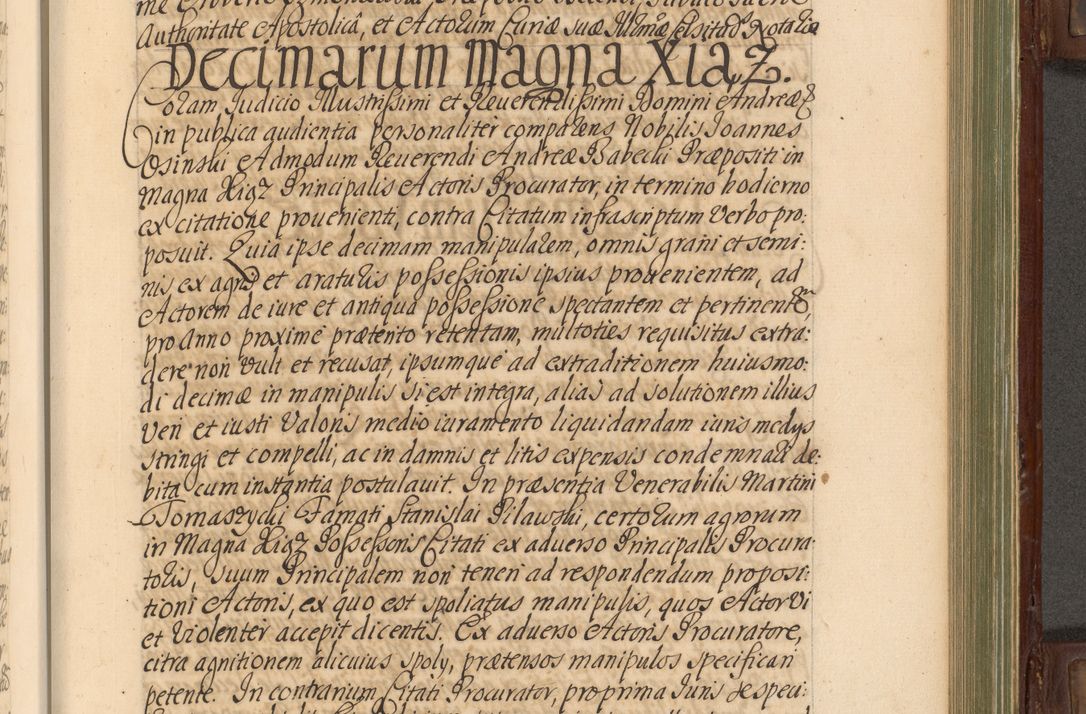 Authoritate Apostolica, et Actorum Curiæ suæ Illmæ Celsitds Notario
Decimarum Magna Xiąż.
Coram Judicio Illustrissimi et Reverendissimi Domini Andreæ &
in publica audientia personaliter comparens Nobilis Joannes
Osinski Admodum Reverendi Andreæ Babecki Præpositi in
Magna Xiąż Principalis Actoris Procurator, in termino hodierno
ex citatione provenienti, contra Citatum infrascriptum Verbo pro:
posuit. Quia ipse decimam manipularem, omnis grani et semi:
nis ex agris et araturis possessionis ipsius provenientem, ad
Actorem de iure et antiqua possessione spectantem et pertinentem,
pro Anno proxime prætento retentam, multoties requisitus extra:
dere non vult et recusat, ipsumque ad extraditionem huiusmo:
di decimæ in manipulis si est integra, alias ad solutionem illius
Veri et iusti Valoris medio iuramento liquidandam iuris medys
stringi et compelli, ac in damnis et litis expensis condemnari de:
bita cum instantia postulavit. In præsentia Venerabilis Martini
Tomaszycki Famati Stanislai Pilawski, certorum agrorum
in Magna Xiąż Possessoris Citati ex adverso Principalis Procura:
toris, suum Principalem non teneri ad respondendum proposi:
tioni Actoris, ex quo est spoliatus manipulis, quos Actor Vi
et Violenter accepit dicentis. Ex adverso Actoris Procuratore,
citra agnitionem alicuius spoly, prætensos manipulos specificari
petente. In contrarium Citati Procurator, pro prima Juris de speci: